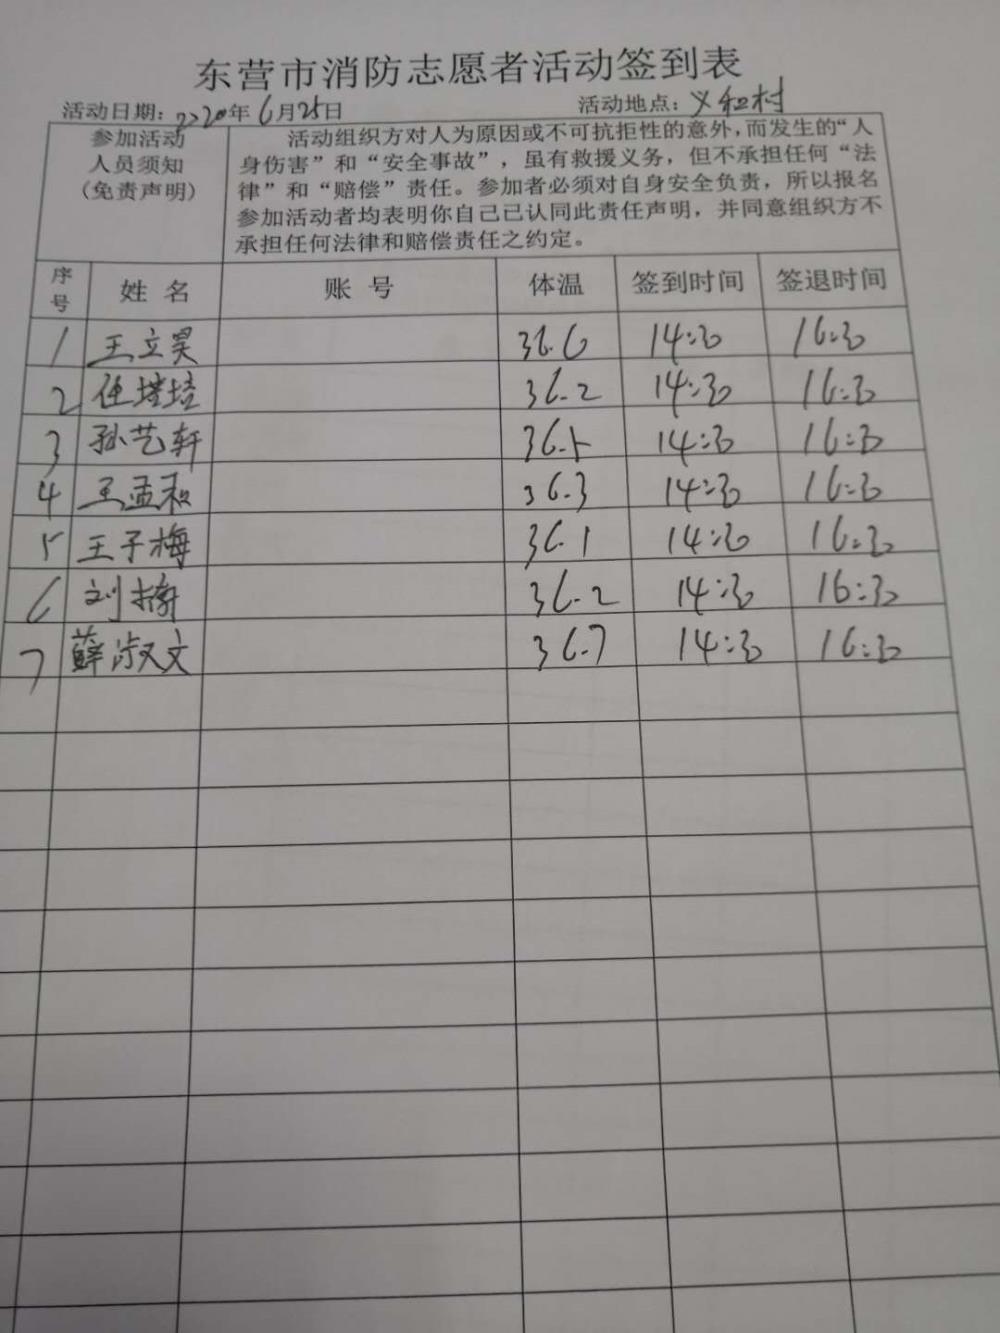 东营市消防志愿者活动签到表
活动日期：2020年6月25日 活动地点：义和村
参加活动
人员须知
（免责声明）
活动组织方对人为原因或不可抗拒性的意外，而发生的“人
身伤害”和“安全事故”，虽有救援义务，但不承担任何“法
律”和“赔偿”责任。参加者必须对自身安全负责，所以报名
参加活动者均表明你自己已认同此责任声明，并同意组织方不
承担任何法律和赔偿责任之约定。
序号 姓名 账号 体温 签到时间 签退时间
1 王立昊 36.6 14:30 16:30
2 任培培 36.2 14:30 16:30
3 孙艺轩 36.5 14:30 16:30
4 王孟和 36.3 14:30 16:30
5 王子梅 36.1 14:30 16:30
6 刘 36.2 14:30 16:30
7 薛淑文 36.7 14:30 16:30